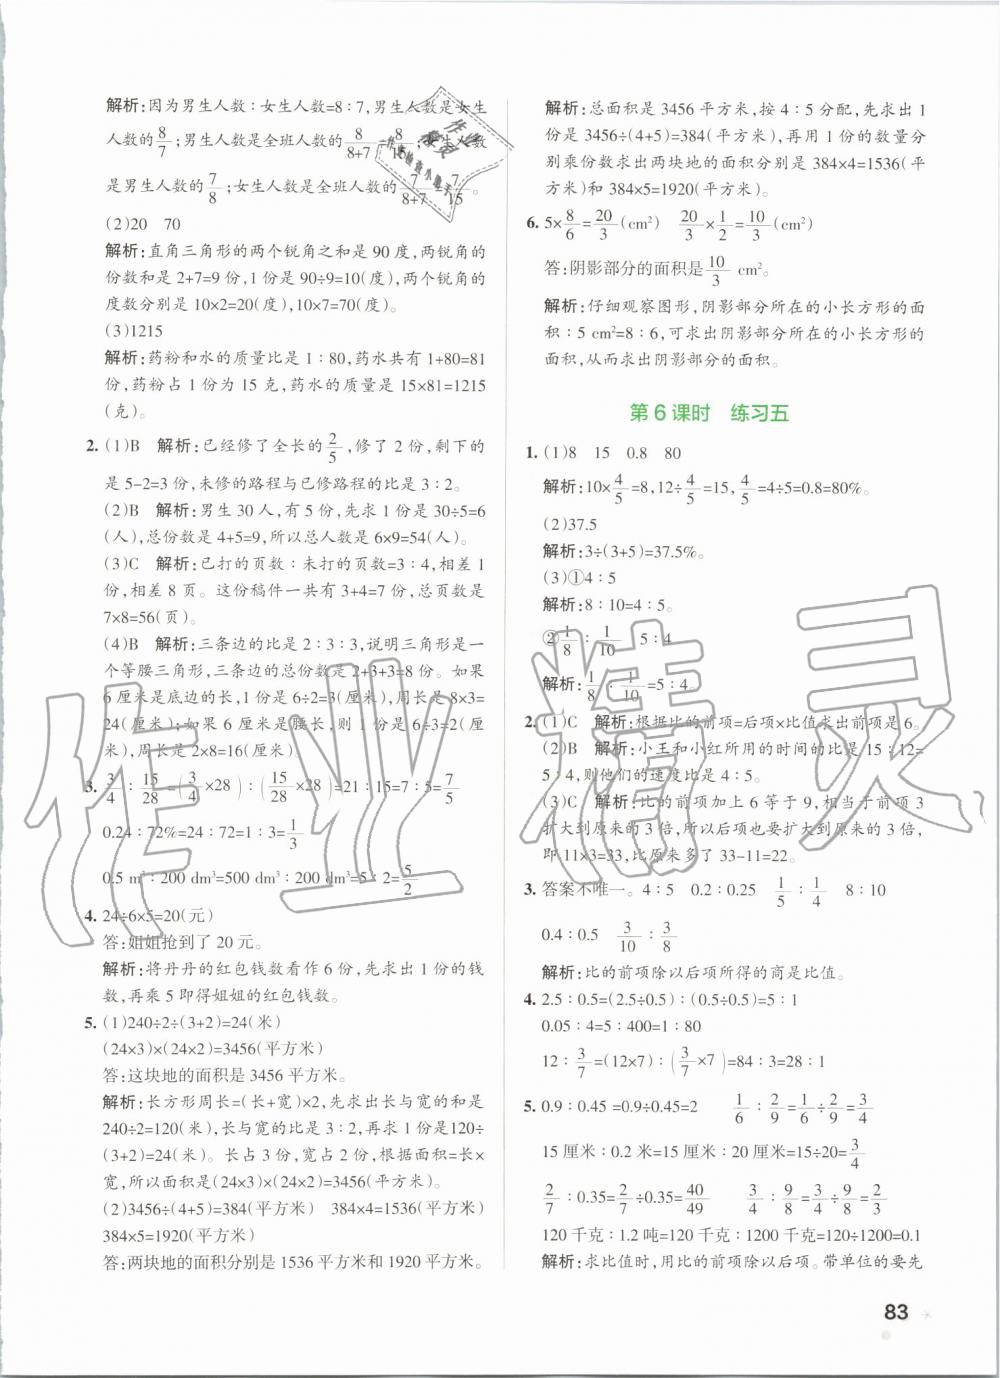 解析:因为男生人数∶女生人数=8∶7,男生人数是女生
人数的8/7;男生人数是全班人数的8/(8+7)=8/15;女生人数
是男生人数的7/8;女生人数是全班人数的7/(8+7)=7/15。
(2)20 70
解析:直角三角形的两个锐角之和是 90 度,两锐角的
份数和是 2+7=9 份,1 份是 90÷9=10(度),两个锐角的
度数分别是 10×2=20(度),10×7=70(度)。
(3)1215
解析:药粉和水的质量比是 1∶80,药水共有 1+80=81
份,药粉占 1 份为 15 克,药水的质量是 15×81=1215
(克)。
2. (1)B 解析:已经修了全长的2/5,修了 2 份,剩下的
是 5-2=3 份,未修的路程与已修路程的比是 3∶2。
(2)B 解析:男生 30 人,有 5 份,先求 1 份是 30÷5=6
(人),总份数是 4+5=9,所以总人数是 6×9=54(人)。
(3)C 解析:已打的页数∶未打的页数=3∶4,相差 1
份,相差 8 页。这份稿件一共有 3+4=7 份,总页数是
7×8=56(页)。
(4)B 解析:三条边的比是 2∶3∶3,说明三角形是一
个等腰三角形,三条边的总份数是 2+3+3=8 份。如果
6 厘米是底边的长,1 份是 6÷2=3(厘米),周长是 8×3=
24(厘米);如果 6 厘米是腰长,则 1 份是 6÷3=2(厘
米),周长是 2×8=16(厘米)
3. 3/4∶15/28=(3/4×28)∶(15/28×28)=21∶15=7∶5=7/5
0.24∶72%=24∶72=1∶3=1/3
0.5 m³∶200 dm³=500 dm³∶200 dm³=5∶2=5/2
4. 24÷6×5=20(元)
答:姐姐抢到了 20 元。
解析:将丹丹的红包钱数看作 6 份,先求出 1 份的钱
数,再乘 5 即得姐姐的红包钱数。
5. (1)240÷2÷(3+2)=24(米)
(24×3)×(24×2)=3456(平方米)
答:这块地的面积是 3456 平方米。
解析:长方形周长=(长+宽)×2,先求出长与宽的和是
240÷2=120(米),长与宽的比是 3∶2,再求 1 份是120÷
(3+2)=24(米)。长占 3 份,宽占 2 份,根据面积=长×
宽,所以面积是(24×3)×(24×2)=3456(平方米)。
(2)3456÷(4+5)=384(平方米) 384×4=1536(平方米)
384×5=1920(平方米)
答:两块地的面积分别是 1536 平方米和 1920 平方米。
解析:总面积是 3456 平方米,按 4∶5 分配,先求出 1
份是 3456÷(4+5)=384(平方米),再用 1 份的数量分
别乘份数求出两块地的面积分别是 384×4=1536(平
方米)和 384×5=1920(平方米)。
6. 5×8/6=20/3(cm²) 20/3×1/2=10/3(cm²)
答:阴影部分的面积是10/3 cm²。
解析:仔细观察图形,阴影部分所在的小长方形的面
积∶5 cm²=8∶6,可求出阴影部分所在的小长方形的
面积,从而求出阴影部分的面积。
第 6 课时 练习五
1. (1)8 15 0.8 80
解析:10×4/5=8,12÷4/5=15,4/5=4÷5=0.8=80%。
(2)37.5
解析:3÷(3+5)=37.5%。
(3)①4∶5
解析:8∶10=4∶5。
②1/8∶1/10 5∶4
解析:1/8∶1/10=5∶4。
2. (1)C 解析:根据比的前项=后项×比值求出前项是 6。
(2)B 解析:小王和小红所用的时间的比是 15∶12=
5∶4,则他们的速度比是 4∶5。
(3)C 解析:比的前项加上 6 等于 9,相当于前项 3
扩大到原来的 3 倍,所以后项也要扩大到原来的 3 倍,
即 11×3=33,比原来多了 33-11=22。
3. 答案不唯一。4∶5 0.2∶0.25 1/5∶1/4 8∶10
0.4∶0.5 3/10∶3/8
解析:比的前项除以后项所得的商是比值。
4. 2.5∶0.5=(2.5÷0.5)∶(0.5÷0.5)=5∶1
0.05∶4=5∶400=1∶80
12∶3/7=(12×7)∶(3/7×7)=84∶3=28∶1
5. 0.9∶0.45=0.9÷0.45=2 1/6∶2/9=1/6÷2/9=3/4
15 厘米∶0.2 米=15 厘米∶20 厘米=15÷20=3/4
2/7∶0.35=2/7÷0.35=40/49 3/4∶9/8=3/4÷9/8=2/3
120 千克∶1.2 吨=120 千克∶1200 千克=120÷1200=0.1
解析:求比值时,用比的前项除以后项。带单位的要先
83
作业精灵